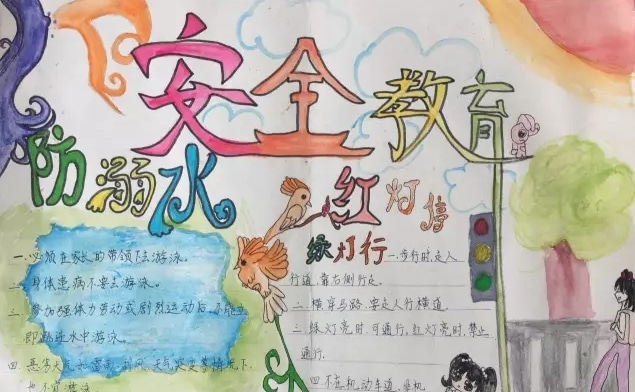 安全教育
防溺水
一.必须在家长的带领下去游泳。
二.身体患病不要去游泳。
三.参加强体力劳动或剧烈运动后,不能立
即跳进水中游泳。
四.恶劣天气如雷雨、刮风、天气突变等情况下,
也不宜游泳
红灯停
绿灯行
一.步行时,走人
行道,靠右侧行走。
二.横穿马路,要走人行横道
三.绿灯亮时,可通行,红灯亮时,禁止
通行.
四.不在机动车道